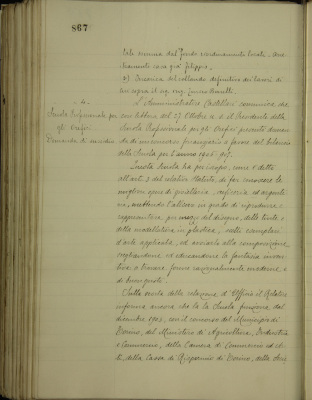 867
tale somma dal fondo
casa già Filippi,
2) Incarica del collaudo definitivo dei lavori di
cui sopra il sig. ing.
- 4 -
Scuola Professionale per
gli Orefici
Domanda di sussidio
L'Amministratore Castellari comunica che
con lettera del 27 Ottobre u. s. il Presidente della
Scuola Professionale per gli Orefici presenta domanda
di un concorso pecuniario a favore del bilancio
della Scuola per l'anno 1906-907.
Questa Scuola ha per iscopo, come è detto
all'art. 2 del relativo Statuto, di far conoscere le
migliori opere di gioielleria, oreficeria ed argenteria,
mettendo l'allievo in grado di riprodurre e
rappresentare per mezzo del disegno, delle tinte e
della modellatura in plastica, scelti esemplari
d'arte applicata, ed avviarlo alla composizione,
svegliandone ed educandone la fantasia
a trovare forme razionalmente moderne, e
di buon gusto.
Sulla scorta della relazione d'Ufficio il Relatore
informa ancora che la Scuola funziona dal
dicembre 1901, con il concorso del Municipio di
Torino, del Ministero di Agricoltura, Industria
e Commercio, della Camera di Commercio ed
Arti, della Cassa di Risparmio di Torino, delle